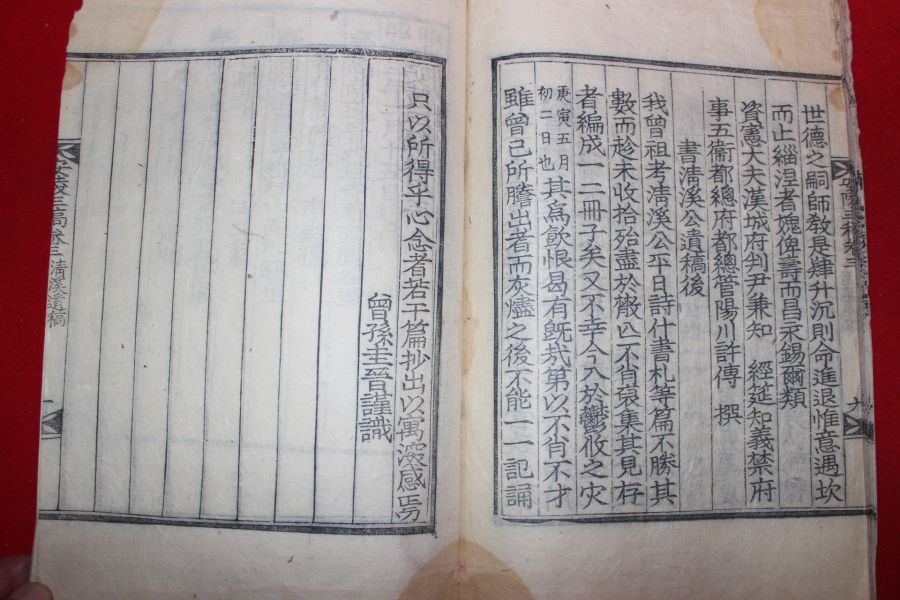 世德之嗣師教是肄升沉則命進退惟意遇坎
而止緇涅者媿俾壽而昌天錫爾類
資憲大夫漢城府判尹兼知 經延知義禁府
事五衛都總府都總管陽川許傳 撰
書淸溪公遺稿後
我曾祖考淸溪公平日詩什書札等篇不勝其
數而趁未收拾殆盡於散亡不肖裒集其見存
者編成一二冊子矣又不幸今入於鬱攸之灾
庚寅五月初二日也其爲飮恨曷有旣哉第以不肖不才
雖曾已所謄出者而灰燼之後不能一一記誦
只以所得乎心念者若干篇抄出以寓深感焉
曾孫圭晉謹識
三稿卷三 淸溪遺稿